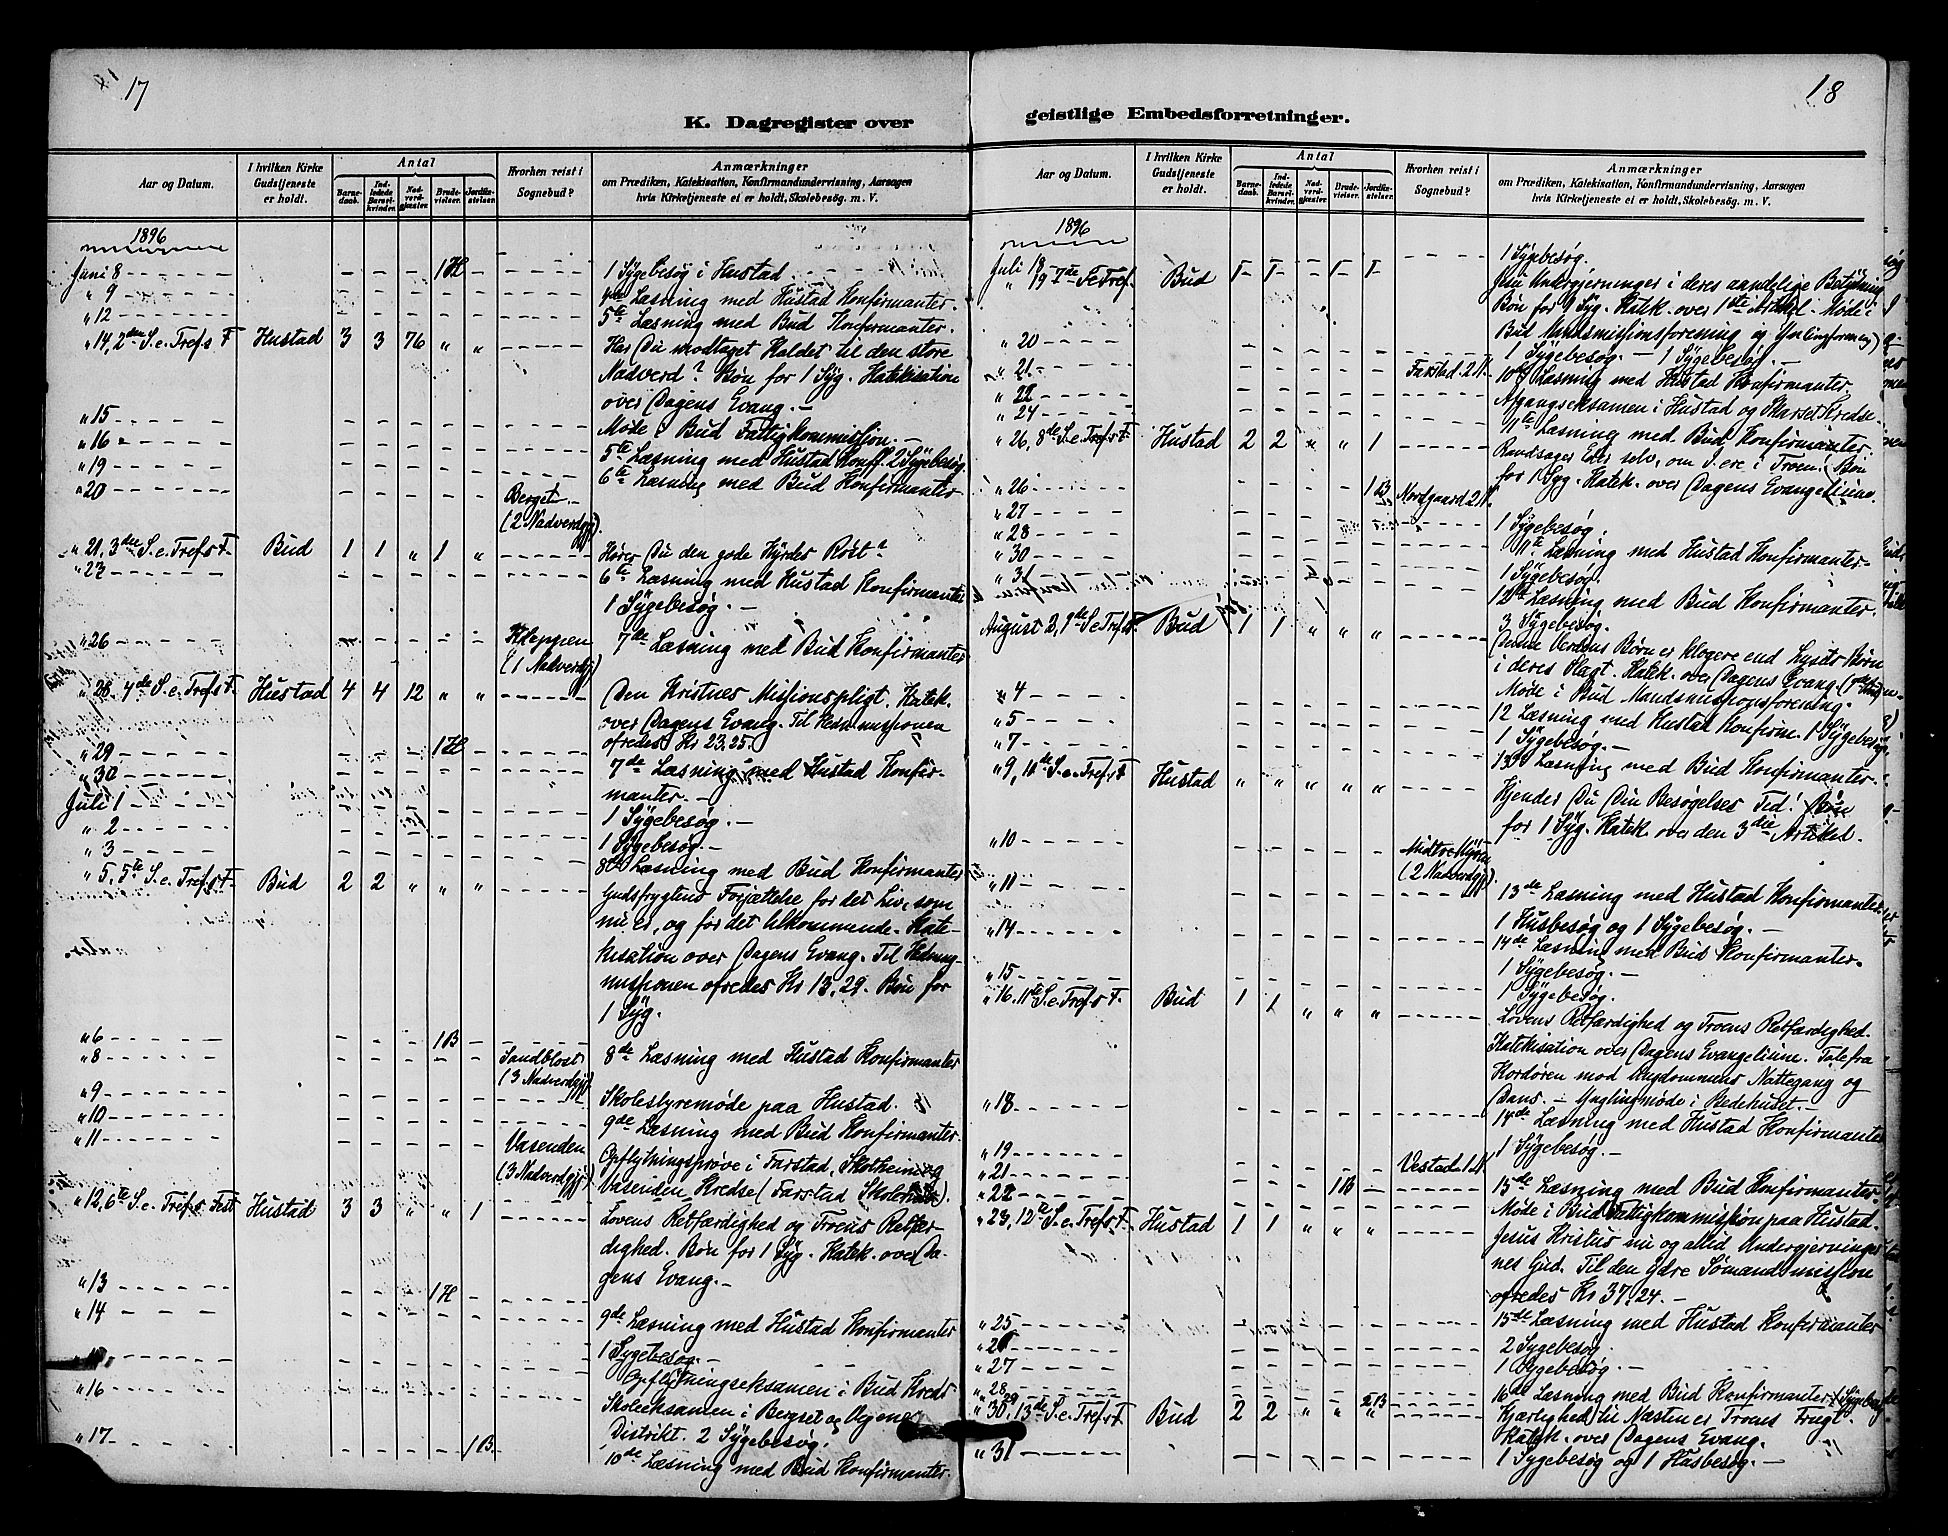 17
K. Dagregister over
Aar og Datum.
I hvilken Kirke Gudstjeneste er holdt.
Antal
Barnedaab.
Indledede Barselkvinder.
Nadverdgjæster.
Brudevielser.
Jordfæstelser.
Hvorhen reist i Sognebud?
Anmærkninger
om Prædiken, Katekisation, Konfirmandundervisning, Aarsagen
hvis Kirketjeneste ei er holdt, Skolebesög. m. V.
1896
Juni 8 1 H 1 Sygebesøg i Hustad
" 9 4de Læsning med Hustad Konfirmanter.
" 12 5te Læsning med Bud Konfirmanter.
" 14, 2den S. e. Tref.s F. Hustad 3 3 76 " " Har Du modtaget Kaldet til den store
Nadverd? Bøn for 1 Syg. Katekisation
over Dagens Evang.
" 15 Møde i Bud Fattigkommission.
" 16 5te Læsning med Hustad Konff. 2 Sygebesøg.
" 19 6te Læsning med Bud Konfirmanter
" 20 Berget
(2 Nadverdgj).
" 21, 3die S. e. Tref.s F. Bud 1 1 " 1 " Hører Du den gode Hyrdes Røst?
" 23 6te Læsning med Hustad Konfirmanter
1 Sygebesøg.
" 26 Kleppen 7de Læsning med Bud Konfirmanter
(1 Nadverdgj)
" 28. 4de S. e. Tref.s F. Hustad 4 4 12 " " Den Kristnes Missionspligt. Katek.
over Dagens Evang. Til Hedn.missionen
ofredes Kr 23,25.
" 29 1 H
" 30 7de Læsning med Hustad Konfirmanter.
Juli 1 1 Sygebesøg.
" 2 1 Sygebesøg.
" 3 8de Læsning med Bud Konfirmanter
" 5. 5te S. e. Tref.s F. Bud 2 2 " " " Gudsfrygtens Forjættelse for det Liv, som
nu er, og for det tilkommende. Kate-
kisation over Dagens Evang. Til Hedning-
missionen ofredes Kr 13,29. Bøn for
1 Syg.
" 6 1 B
" 8 Sandblost 8de Læsning med Hustad Konfirmanter
(3 Nadverdgj)
" 9 Skolestyremøde paa Hustad.
" 10 9de Læsning med Bud Konfirmanter.
" 11 Vasenden Opflytningsprøve i Farstad, Skotheim og
(3 Nadverdgj) Vasenden Kredse (Farstad Skolehus).
" 12, 6te S. e. Tref.s Fest Hustad 3 3 " " 1 Lovens Retfærdighed og Troens Retfær-
dighed. Bøn for 1 Syg. Katek. over Da-
gens Evang.
" 13 1 H
" 14 9de Læsning med Hustad Konfirmanter
1 Sygebesøg.
" 16 Opflytningseksamen i Bud Kreds
Skoleeksamen i Bergset og
Distrikt. 2 Sygebesøg.
" 17 1 B. 10de Læsning med Bud Konfirmanter.
18
geistlige Embedsforretninger.
Aar og Datum.
I hvilken Kirke Gudstjeneste er holdt.
Antal
Barnedaab.
Indledede Barselkvinder.
Nadverdgjæster.
Brudevielser.
Jordfæstelser.
Hvorhen reist i Sognebud?
Anmærkninger
om Prædiken, Katekisation, Konfirmandundervisning, Aarsagen
hvis Kirketjeneste ei er holdt, Skolebesög. m. V.
1896
Juli 18 1 Sygebesøg.
" 19 7de S e Tref. Bud Jesu Undergjerninger i deres aandelige Betydning
Bøn for 9 Syg. Katek. over 1ste Artikel. Møde i
Bud Mandsmissionsforening og Ynglingforening)
" 20 1 Sygebesøg. 1 Sygebesøg.
" 21 Farstad 2 N. 10de Læsning med Hustad Konfirmanter.
" 22 Afgangseksamen i Hustad og Harset Kredse.
" 24 11te Læsning med Bud Konfirmanter.
" 26, 8de S. e. Tref.s F. Hustad 2 2 " " 1 Randsager Eder selv, om I ere i Troen! Bøn
for 1 Syg. Katek. over Dagens Evangelium.
" 26 1 B Nordgaard 2 N.
" 27 1 Sygebesøg.
" 28 11te Læsning med Hustad Konfirmanter
" 30 1 Sygebesøg.
" 31 12te Læsning med Bud Konfirmanter.
3 Sygebesøg.
August 2, 9de S e Tref.s F. Bud 1 1 " " " Denne Verdens Børn er klogere end Lysets Børn
i deres Slagt. Katek. over Dagens Evang.
Møde i Bud Mandsmissionsforening.
" 4 12 Læsning med Hustad Konfirm. 1 Sygebesøg.
" 5 1 Sygebesøg.
" 7 13de Læsning med Bud Konfirmanter.
" 9, 10de S. e. Tref.s F. Hustad " " " " " Kjender Du Din Besøgelses Tid! Bøn
for 1 Syg. Katek. over den 3die Artikel.
" 10 Midtre
(2 Nadverdgj).
" 11 13de Læsning med Hustad Konfirmanter
1 Husbesøg og 1 Sygebesøg.
" 14 14de Læsning med Bud Konfirmanter.
1 Sygebesøg.
" 15 1 Sygebesøg.
" 16. 11te S. e. Tref.s F. Bud 1 1 " " " Lovens Retfærdighed og Troens Retfærdighed.
Katekisation over Dagens Evangelium. Tale fra
Kordøren mod Ungdommens Nattegang og
Dans. Ynglingmøde i Bedehuset.
" 18 14de Læsning med Hustad Konfirmanter
" 19 1 Sygebesøg.
" 21 Vestad 1 N. 15de Læsning med Bud Konfirmanter.
" 22 1 B Møde i Bud Fattigkommission paa Hustad.
" 23, 12te S. e. Tref.s F. Hustad 1 1 " " " Jesus Kristus nu og altid Undergjerninger-
nes Gud. Til den Ydre Sømandsmission
ofredes Kr 37,24.
" 25 15de Læsning med Hustad Konfirmanter
" 26 2 Sygebesøg
" 27 1 Sygebesøg.
" 28 16de Læsning med Bud Konfirmanter
" 29 2 B
" 30. 13de S. e. Tref.s F. Bud 2 2 " " " Kjærlighed til Næsten er Troens Frugt.
Katek. over Dagens Evang.
" 31 1 Sygebesøg og 1 Husbesøg.